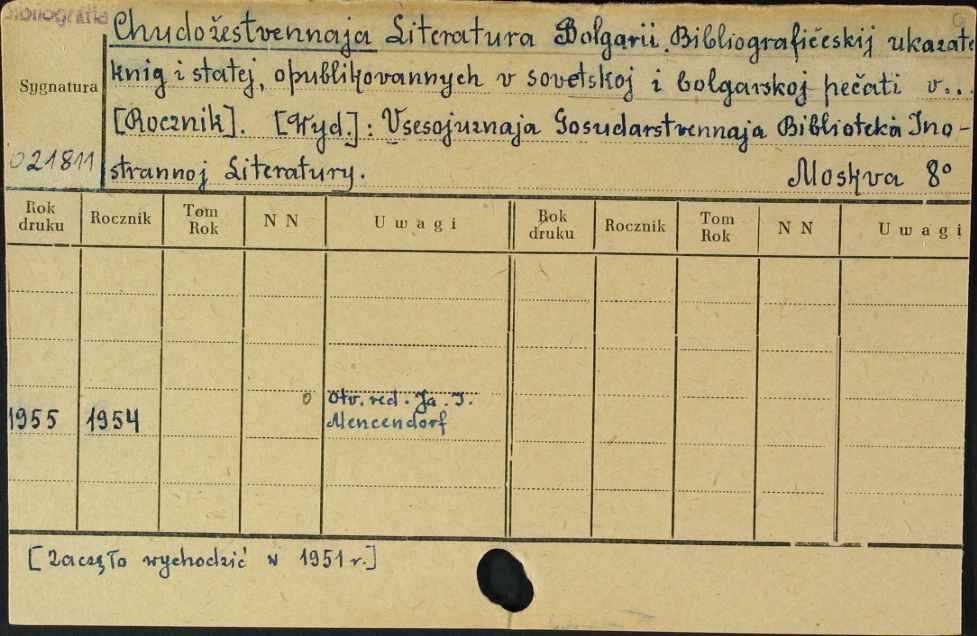 Monografia
Chudožestvennaja Literatura Bolgarii. Bibliografičeskij ukazate
knig i statej, opublikovannych v sovetskoj i bolgarskoj pečati v...
Sygnatura
[Rocznik]. [Wyd.]: Vsesojuznaja Gosudarstvennaja Biblioteka Ino-
021811
strannoj Literatury. Moskva 8°
Rok druku Rocznik Tom Rok NN Uwagi Rok druku Rocznik Tom Rok NN Uwagi
1955 1954 0 Otv. red. Ja. I.
Mencendorf
[Zaczęło wychodzić w 1951 r.]